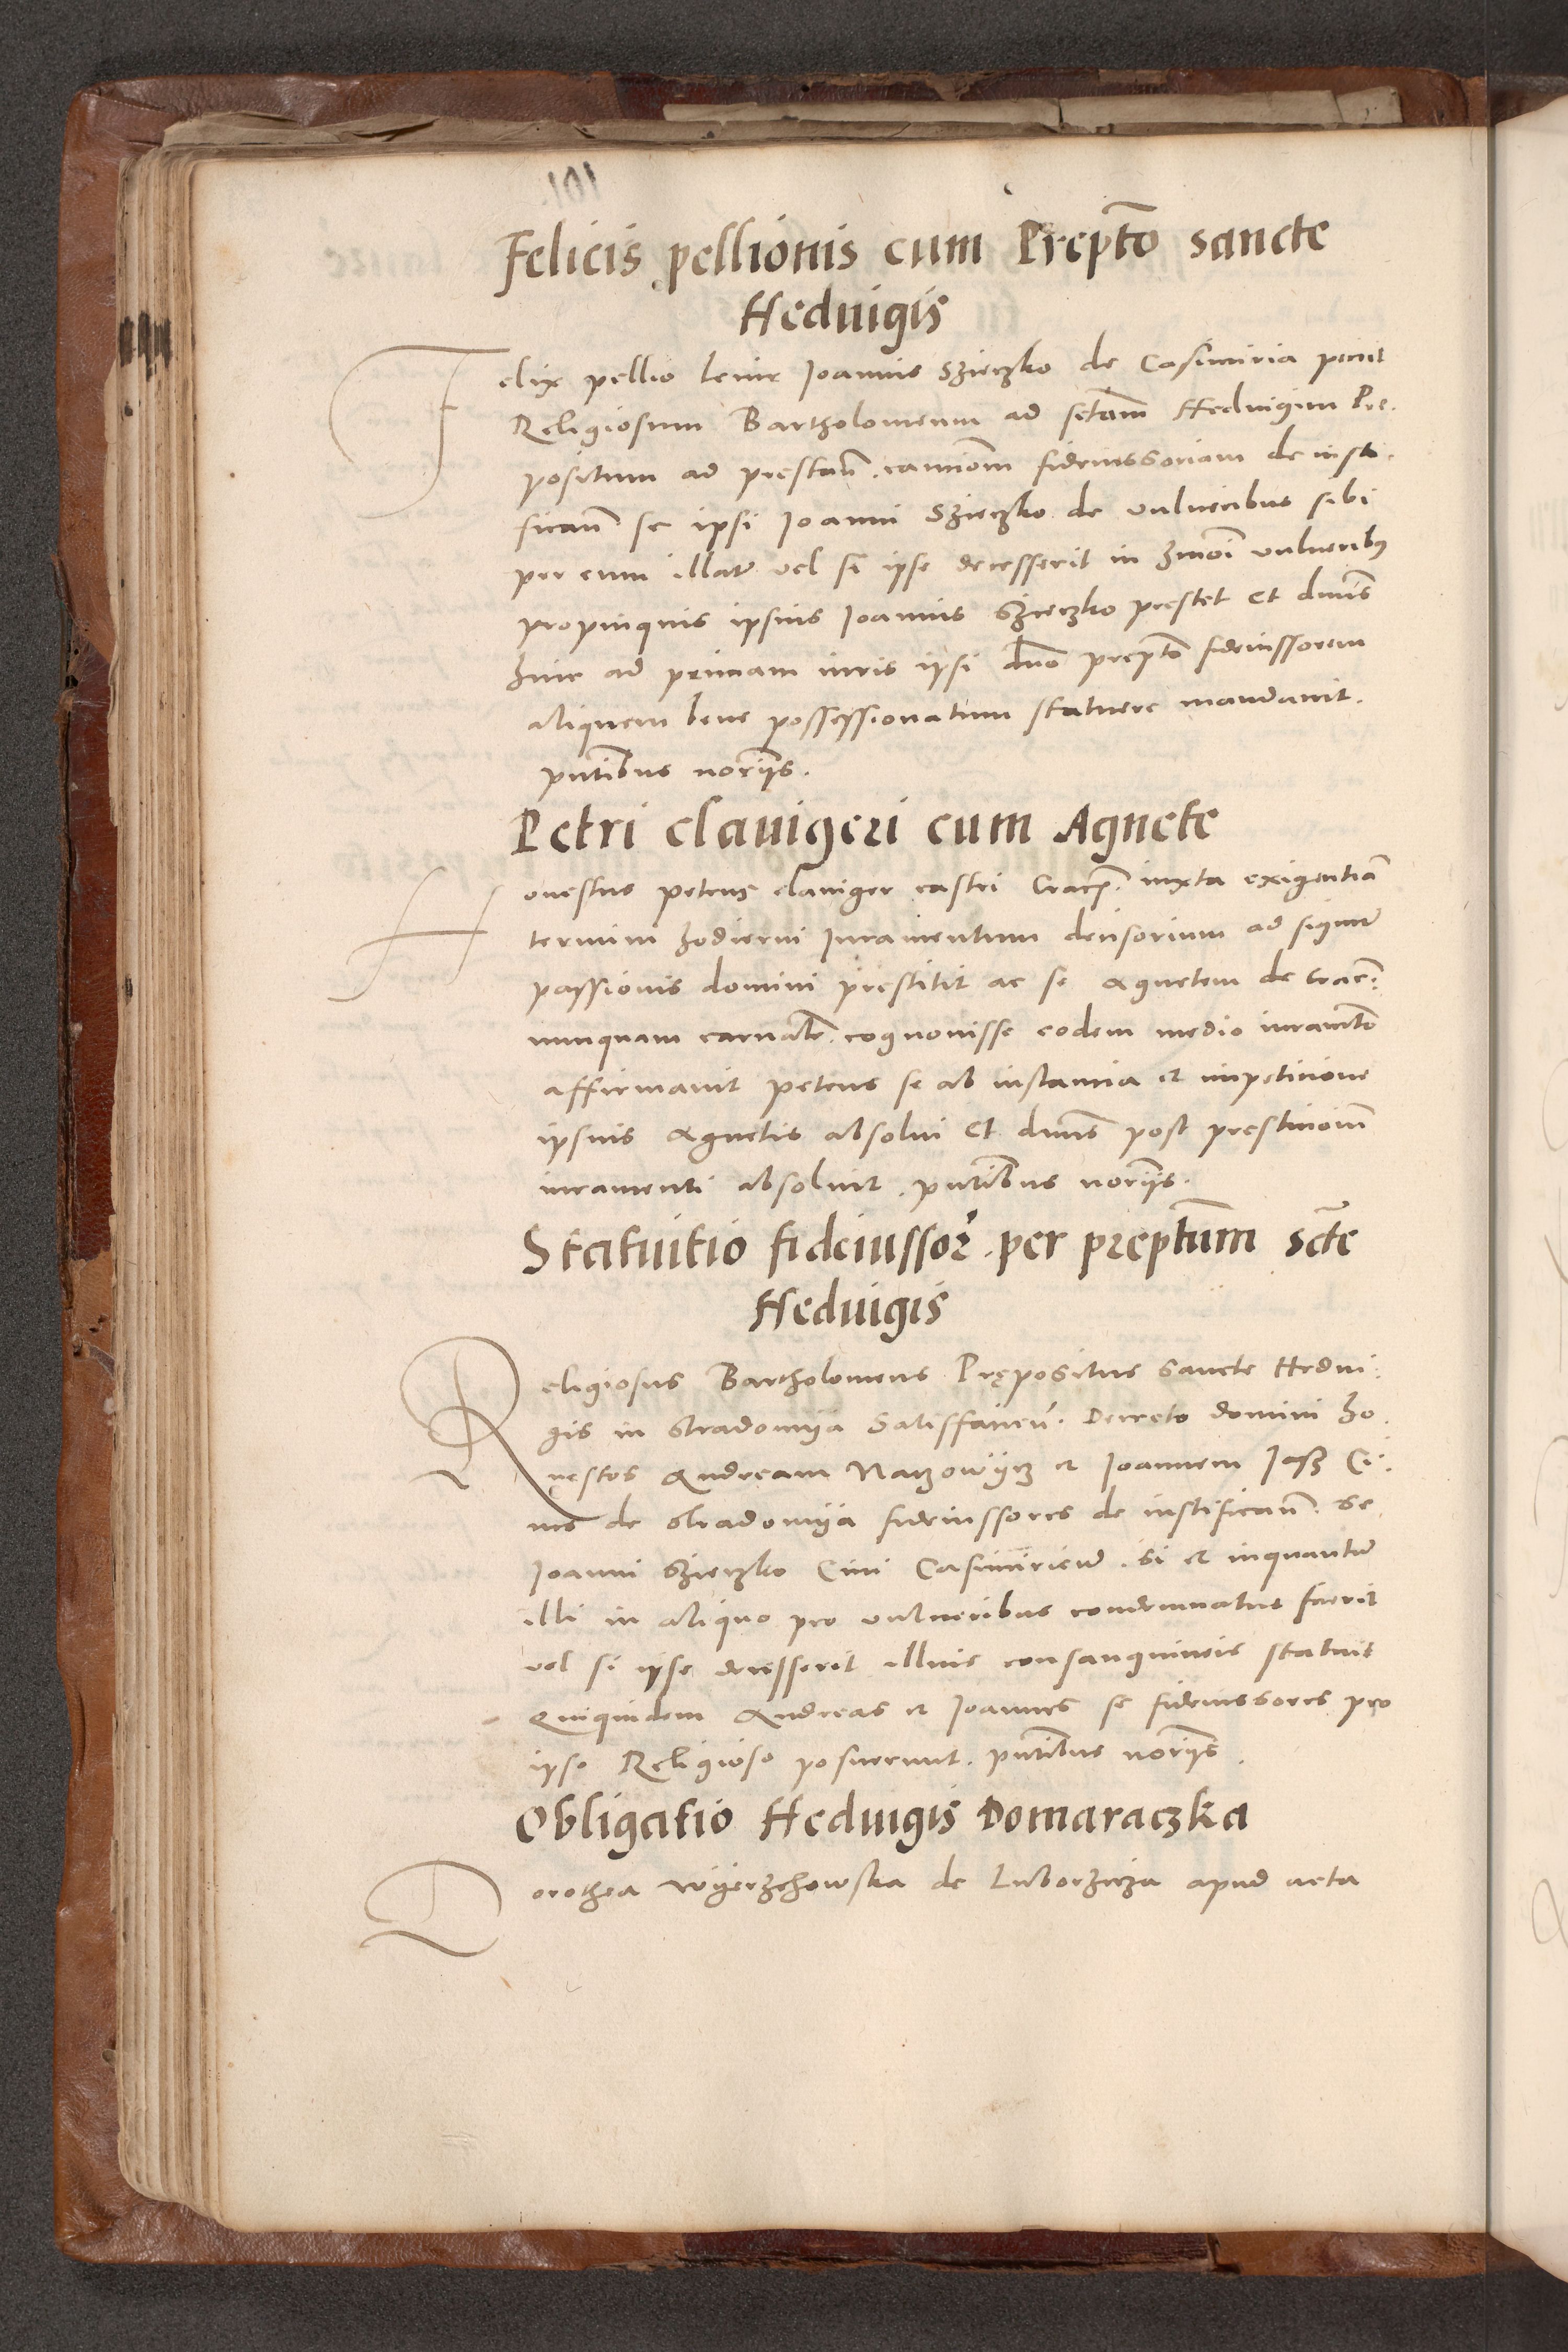 101
Felicis pellionis cum Prepto͞ sancte
Heduigis
Felix pellio levir Joannis Szieczko de Casimiria petiit
Religiosum Bartholomeum ad sctam Heduigim Pre.
positum ad prestan͞. caucione͞m fideiussoriam de iusti.
fican͞ se ipsi Joanni Szieczko de vulneribus sibi
per eum illatis vel si ipse decesserit in hm͞oi vulneribus
propinquis ipsius Joannis Szieczko prestet Et dn͞us
hinc ad primam iuris ipsi dn͞o prepto͞ fideiussorem
aliquem bene possessionatum statuere mandavit.
pn͞tibus nor͞ijs.
Petri clauigeri cum Agnete
Honestus petrus claviger castri Crac͞. iuxta exigentia͞
termini hodierni Juramentum corporium ad signu͞
passionis domini prestitit ac se Agnetem de Crac͞.
nunquam carnalr͞. cognouisse eodem medio iuramto͞
affirmauit petens se ab instancia et impeticione
ipsius Agnetis absolui Et dn͞us post prestitione͞m
iuramenti absoluit. pn͞tibus nor͞ijs.
Statuitio fideiussor. per prepto͞um sct͞e
Heduigis
Religiosus Bartholomeus Prępositus Sancte Hedui:
gis in Stradomija Satisfacien͞. Decreto domini ho.
nęstos Andream Naczowijcz et Joannem Jasz Ci:
ues de Stradomija fideiussores de iustifican͞. se
Joanni Szieczko Ciui Casimirien͞. si et inquantum
illi in aliquo pro vulneribus condemnatus fuerit
vel si ipse decesserit illius consanguineis statuit
Quiquidem Andreas et Joannes se fideiussores pro
ipso Religioso posuerunt. pn͞tibus nor͞ijs.
Obligatio Heduigis Domaraczka
Dorothea Wijerzchowska de Luborzicza apud acta